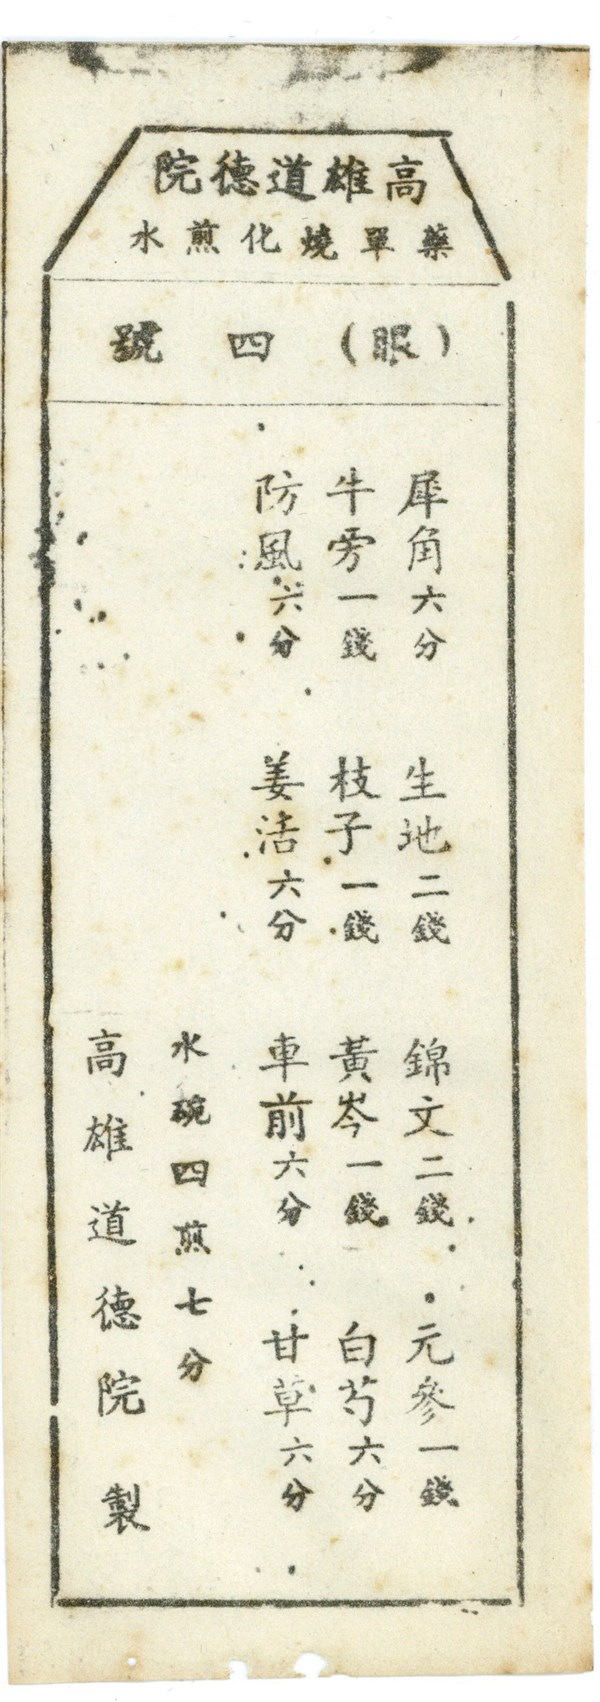 高雄道德院
藥單燒化煎水
（眼）四號
犀角六分　生地二錢　錦文二錢　元參一錢
牛旁一錢　枝子一錢　黃岑一錢　白芍六分
防風六分　姜活六分　車前六分　甘草六分
水碗四煎七分
高雄道德院製